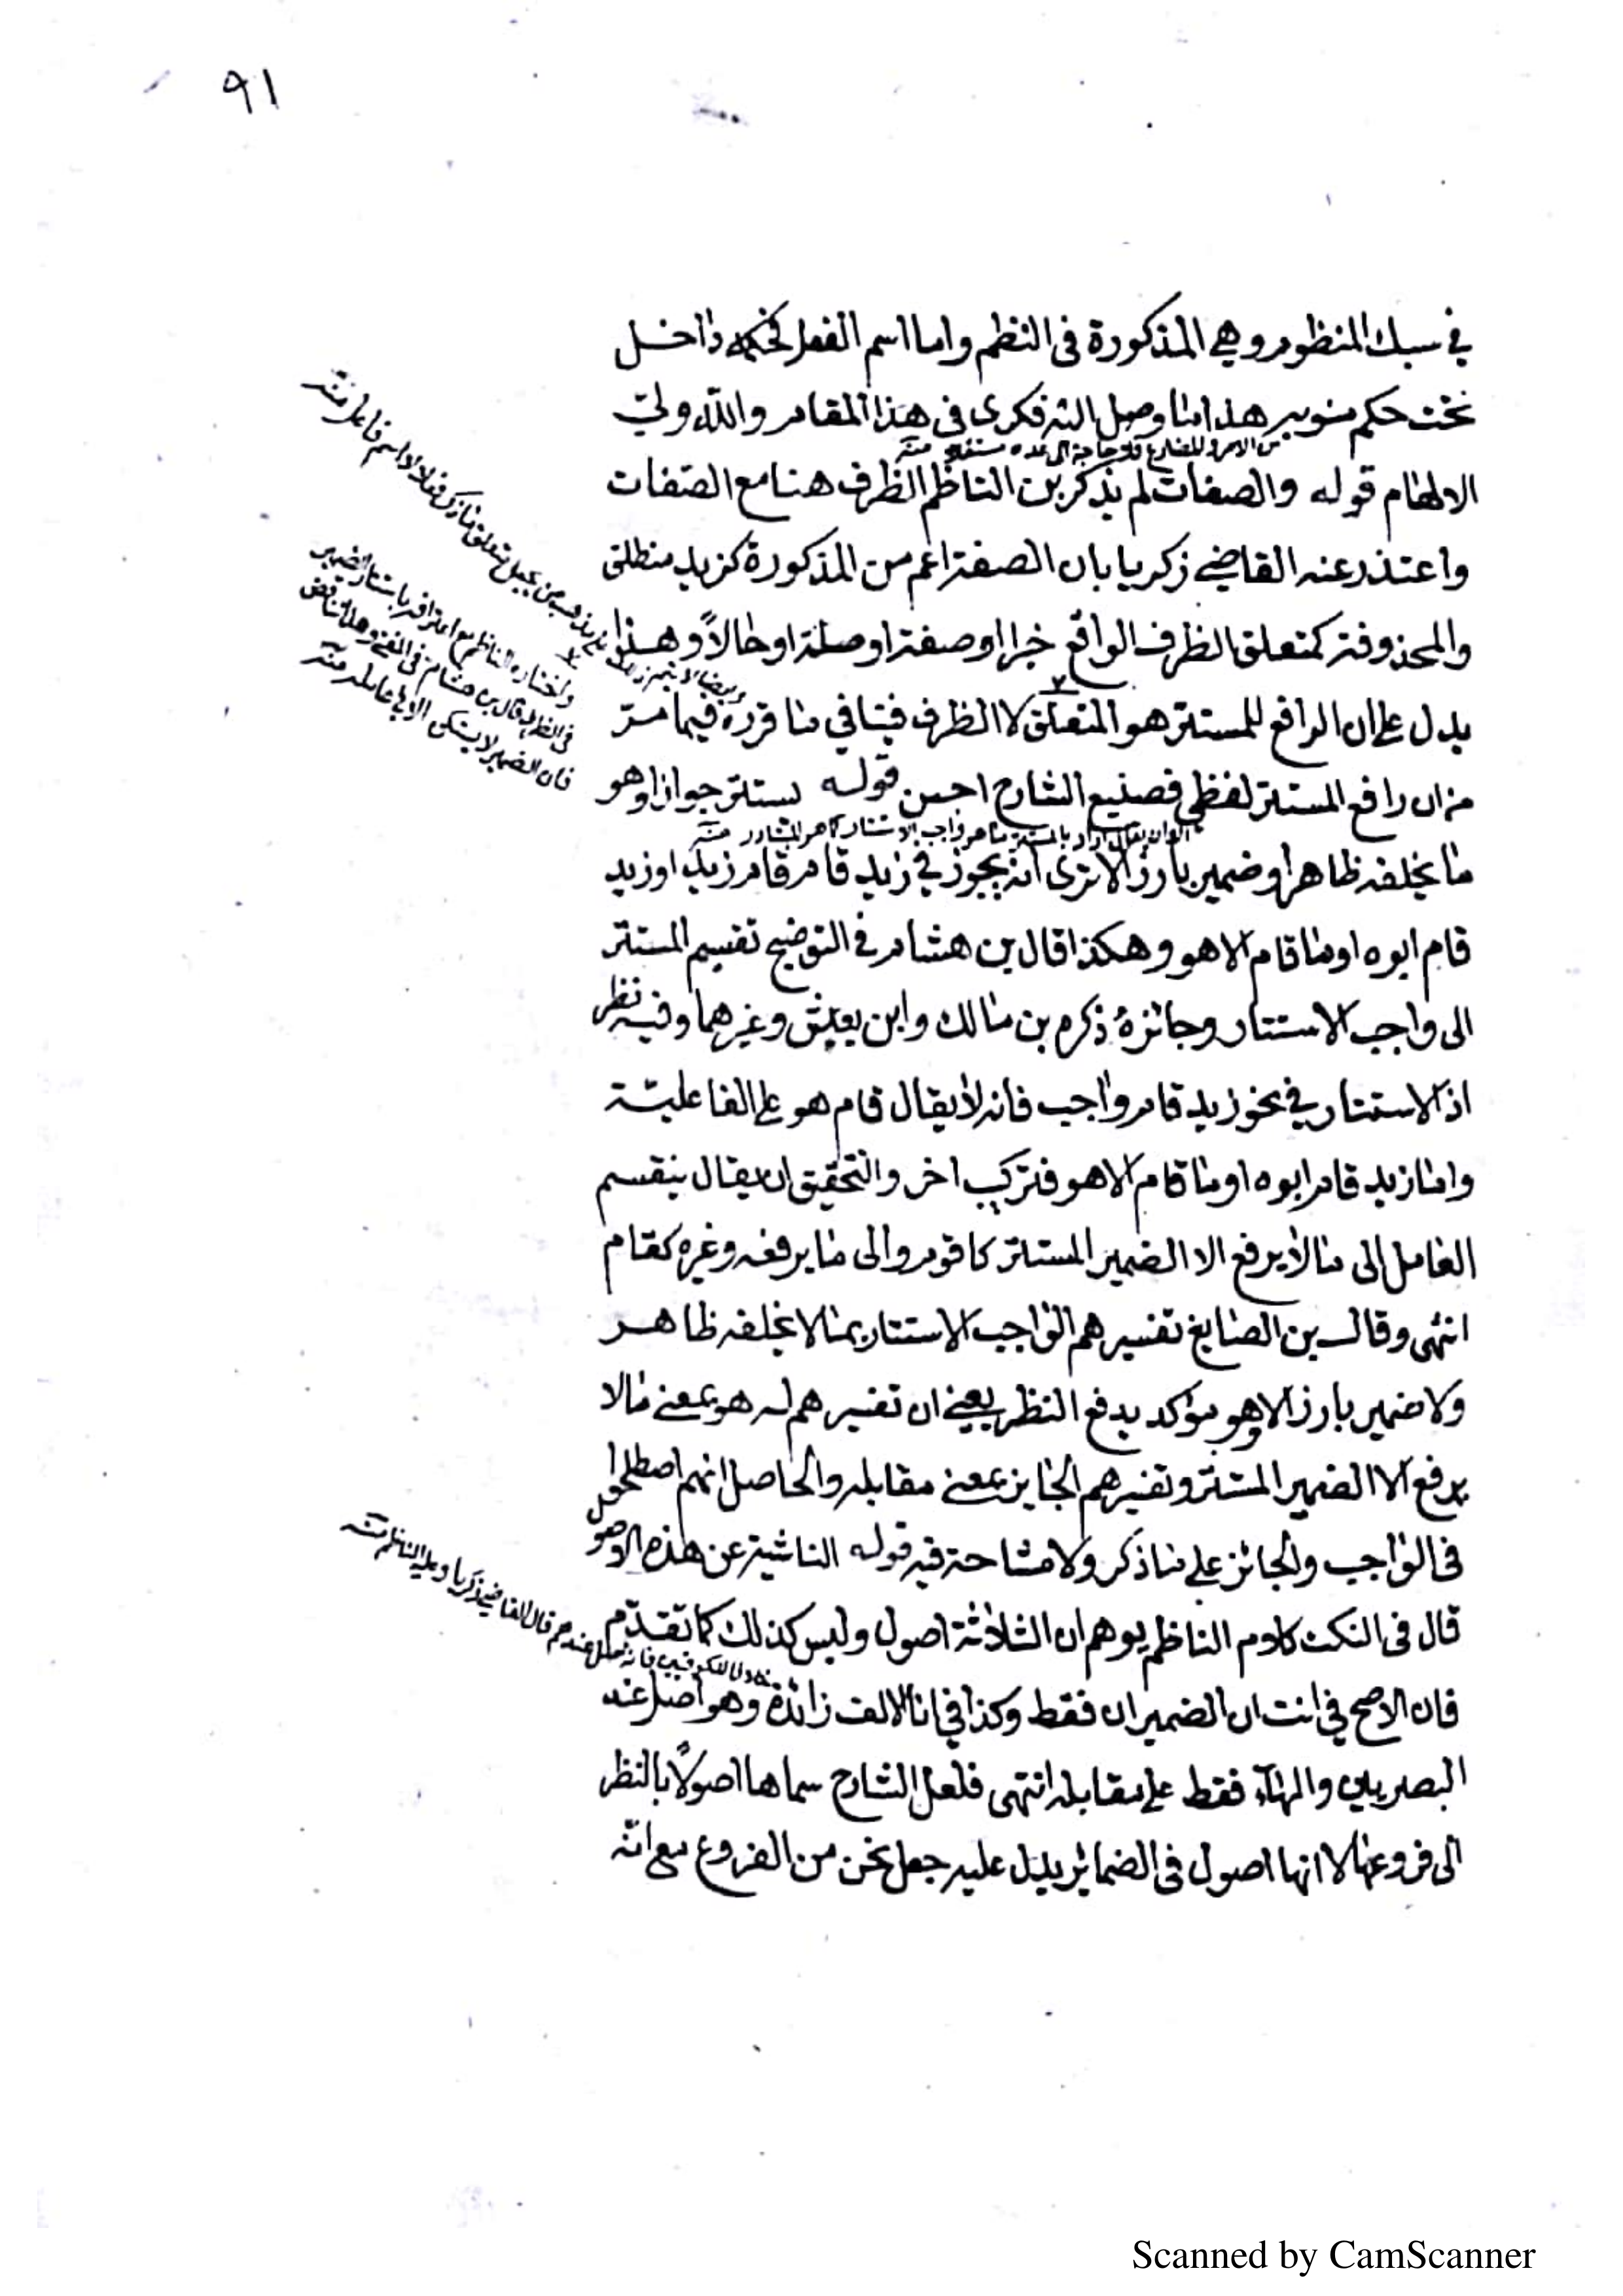 ٩١
في سبك المنظوم وهي المذكورة فى النظم واما اسم الفعل فحكمه داخل
تحت حكم منوبه هذا ما وصل اليه فكرى فى هذا المقام والله ولي
من الامر والمضارع فلا حاجة الى عده مستقلا منه
الالهام قوله والصفات لم يذكر بن الناظم الظرف هنا مع الصفات
واعتذر عنه القاضي زكريا بان الصفة اعم من المذكورة كزيد منطلق
والمحذوفة كمتعلق الظرف الواقع خبرا او صفة او صلة او حالاً وهذا
يدل على ان الرافع للمستتر هو المتعلق لا الظرف فينافي ما قرره فيما مرّ
من ان رافع المستتر لفظي فصنيع الشارح احسن قوله يستتر جوازا وهو
الا ان يقال اراد بالمستتر ما هو واجب الاستتار كما هو المتبادر منه
ما يخلفه ظاهر او ضمير بارز الا ترى انه يجوز في زيد قام قام زيد او زيد
قام ابوه او ما قام الا هو وهكذا قال بن هشام في التوضيح تقسيم المستتر
الى واجب الاستتار وجائزه ذكره بن مالك وابن يعيش وغيرهما وفيه نظر
اذ الاستتار في نحو زيد قام واجب فانه لا يقال قام هو على الفاعلية
واما زيد قام ابوه او ما قام الا هو فتركيب اخر والتحقيق ان يقال ينقسم
العامل الى ما لا يرفع الا الضمير المستتر كاقوم والى ما يرفعه وغيره كقام
انتهى وقال بن الصايغ تفسيرهم الواجب الاستتار بما لا يخلفه ظاهر
ولا ضمير بارز الا وهو مؤكد يدفع النظر يعني ان تفسيرهم له هو بمعنى ما لا
يرفع الا الضمير المستتر وتفسيرهم الجايز بمعنى مقابله والحاصل انهم اصطلحوا
فى الواجب والجائز على ما ذكر ولا مشاحة فيه قوله الناشية عن هذه الاصول
قال فى النكت كلام الناظم يوهم ان الثلاثة اصول وليس كذلك كما تقدّم
خلافا للكوفيين فانه اصل عندهم قال القاضي زكريا وعليه الناظم منه
فان الاصح في انت ان الضمير ان فقط وكذا في انا الالف زائدة وهو اصل عند
البصريين والهاء فقط على مقابله انتهى فلعل الشارح سماها اصولاً بالنظر
الى فروعها لا انها اصول فى الضمائر يدل عليه جعل نحن من الفروع مع انّه
واختاره الناظم مع اعترافه باستتار الضمير
فى الظرف قال بن هشام فى المغني وهذا تناقض
فان الضمير لا يستكن الا في عامله منه
Scanned by CamScanner